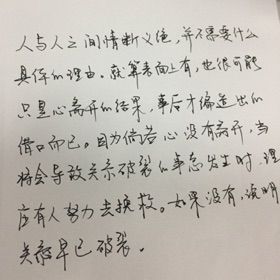 人与人之间情断义绝，并不需要什么
具体的理由。就算表面上有，也很可能
只是心离开的结果，事后才编造出的
借口而已。因为倘若心没有离开，当
将会导致关系破裂的事态发生时，理
应有人努力去挽救。如果没有，说明
关系早已破裂。